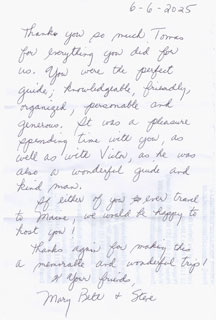 6-6-2025
Thank you so much Tomas
for everything you did for
us. You were the perfect
guide; knowledgable, friendly,
organized, personable and
generous. It was a pleasure
spending time with you, as
well as with Victor, as he was
also a wonderful guide and
kind man.
If either of you ever travel
to Maine, we would be happy to
host you!
Thanks again for making this
a memorable and wonderful trip!
Your friends,
Mary Beth & Steve